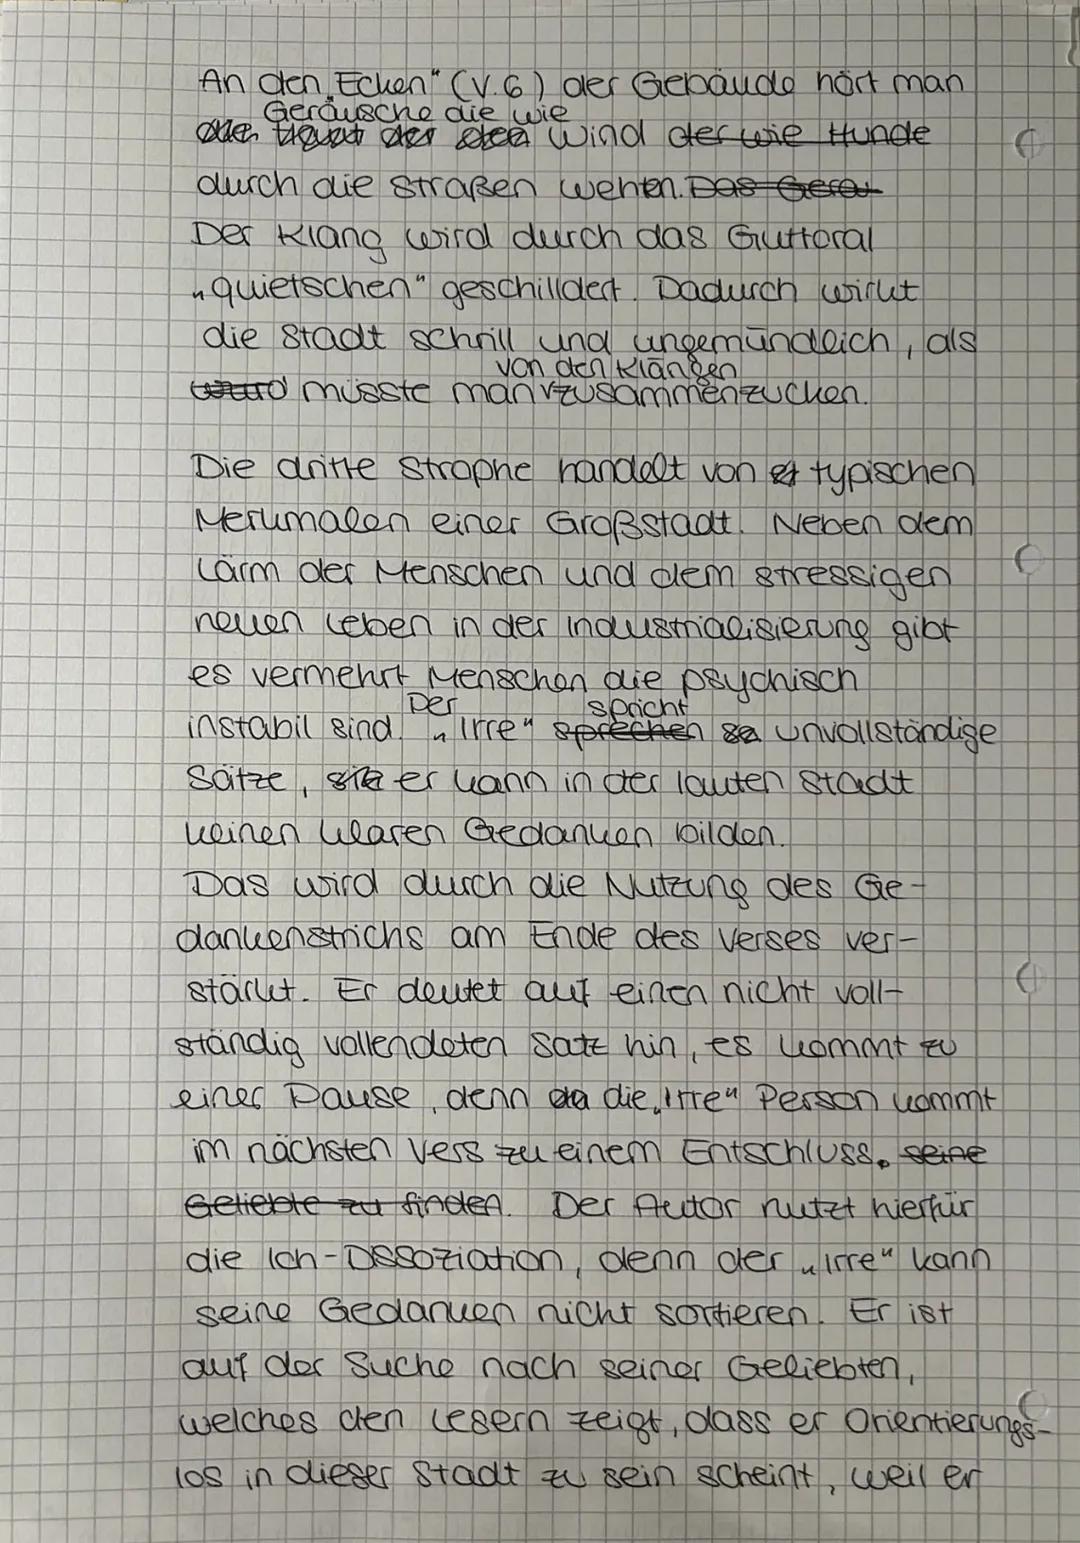 An den „Ecken" (V.6) der Gebäude hört man
Geräusche die wie
Wind der wie Hunde
durch die Straßen wehten. Das Gerä
Der Klang wird durch das Guttoral
„quietschen" geschilldert. Dadurch wirkt
die Stadt schrill und ungemündleich, als
von den Klängen
müsste man zusammenzucken.
Die dritte Strophe handelt von typischen
Merkmalen einer Großstadt. Neben dem
Lärm der Menschen und dem stressigen
neuen Leben in der Industrialisierung gibt
es vermehrt Menschen die psychisch
Der spricht
instabil sind. „Irre" sprechen unvollständige
Sätze, er kann in der lauten Stadt
keinen klaren Gedanken bilden.
Das wird durch die Nutzung des Ge-
dankenstrichs am Ende des Verses ver-
stärkt. Er deutet auf einen nicht voll-
ständig vollendeten Satz hin, es kommt zu
einer Pause, denn da die „Irre" Person kommt
im nächsten Vers zu einem Entschluss. seine
Geliebte zu finden. Der Autor nutzt hierfür
die Ich-Dissoziation, denn der „Irre" kann
seine Gedanken nicht sortieren. Er ist
auf der Suche nach seiner Geliebten,
welches den Lesern zeigt, dass er Orientierungs-
los in dieser Stadt zu sein scheint, weil er